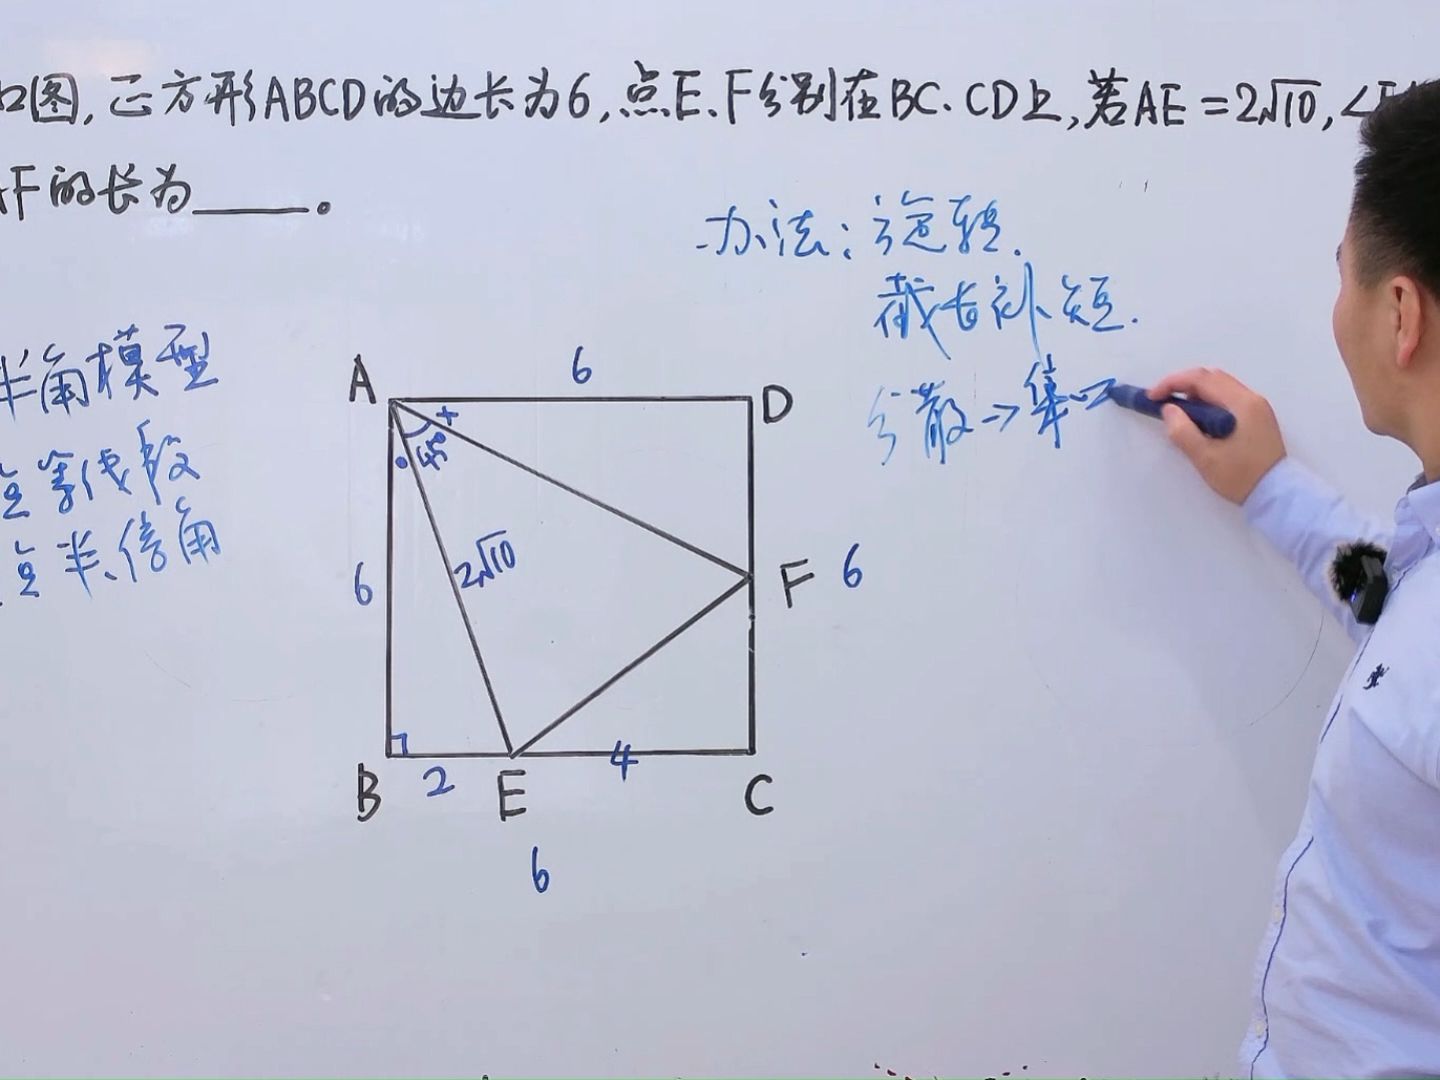 如图,正方形ABCD的边长为6,点E、F分别在BC、CD上,若AE=2√10,∠E
AF的长为____。
办法:旋转.
截长补短.
分散→集
半角模型
等线段
半、倍角
A
6
D
×
45°
6
2√10
F
6
B
2
E
4
C
6